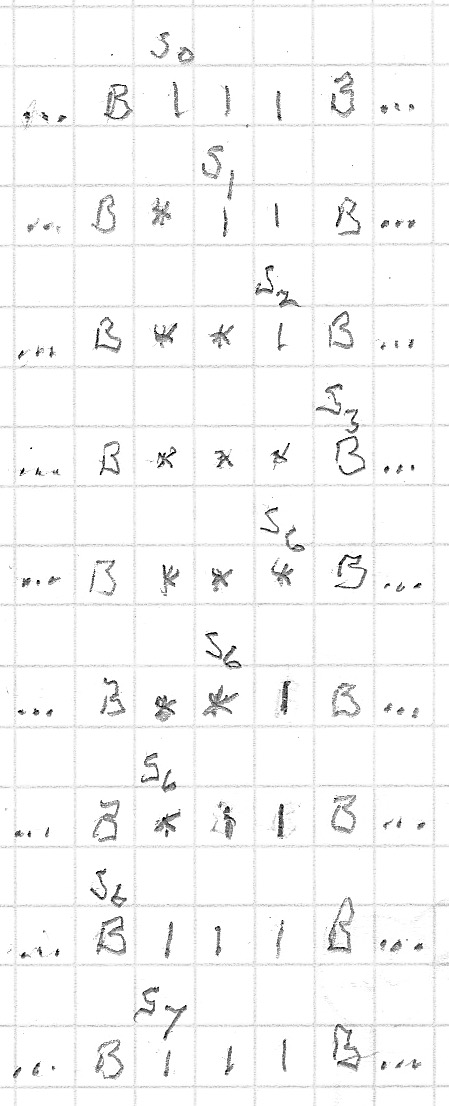 S0
... B 1 1 1 B ...
S1
... B * 1 1 B ...
S2
... B * * 1 B ...
S3
... B * * * B ...
S6
... B * * * B ...
S6
... B * * 1 B ...
S6
... B * 1 1 B ...
S6
... B 1 1 1 B ...
S7
... B 1 1 1 B ...